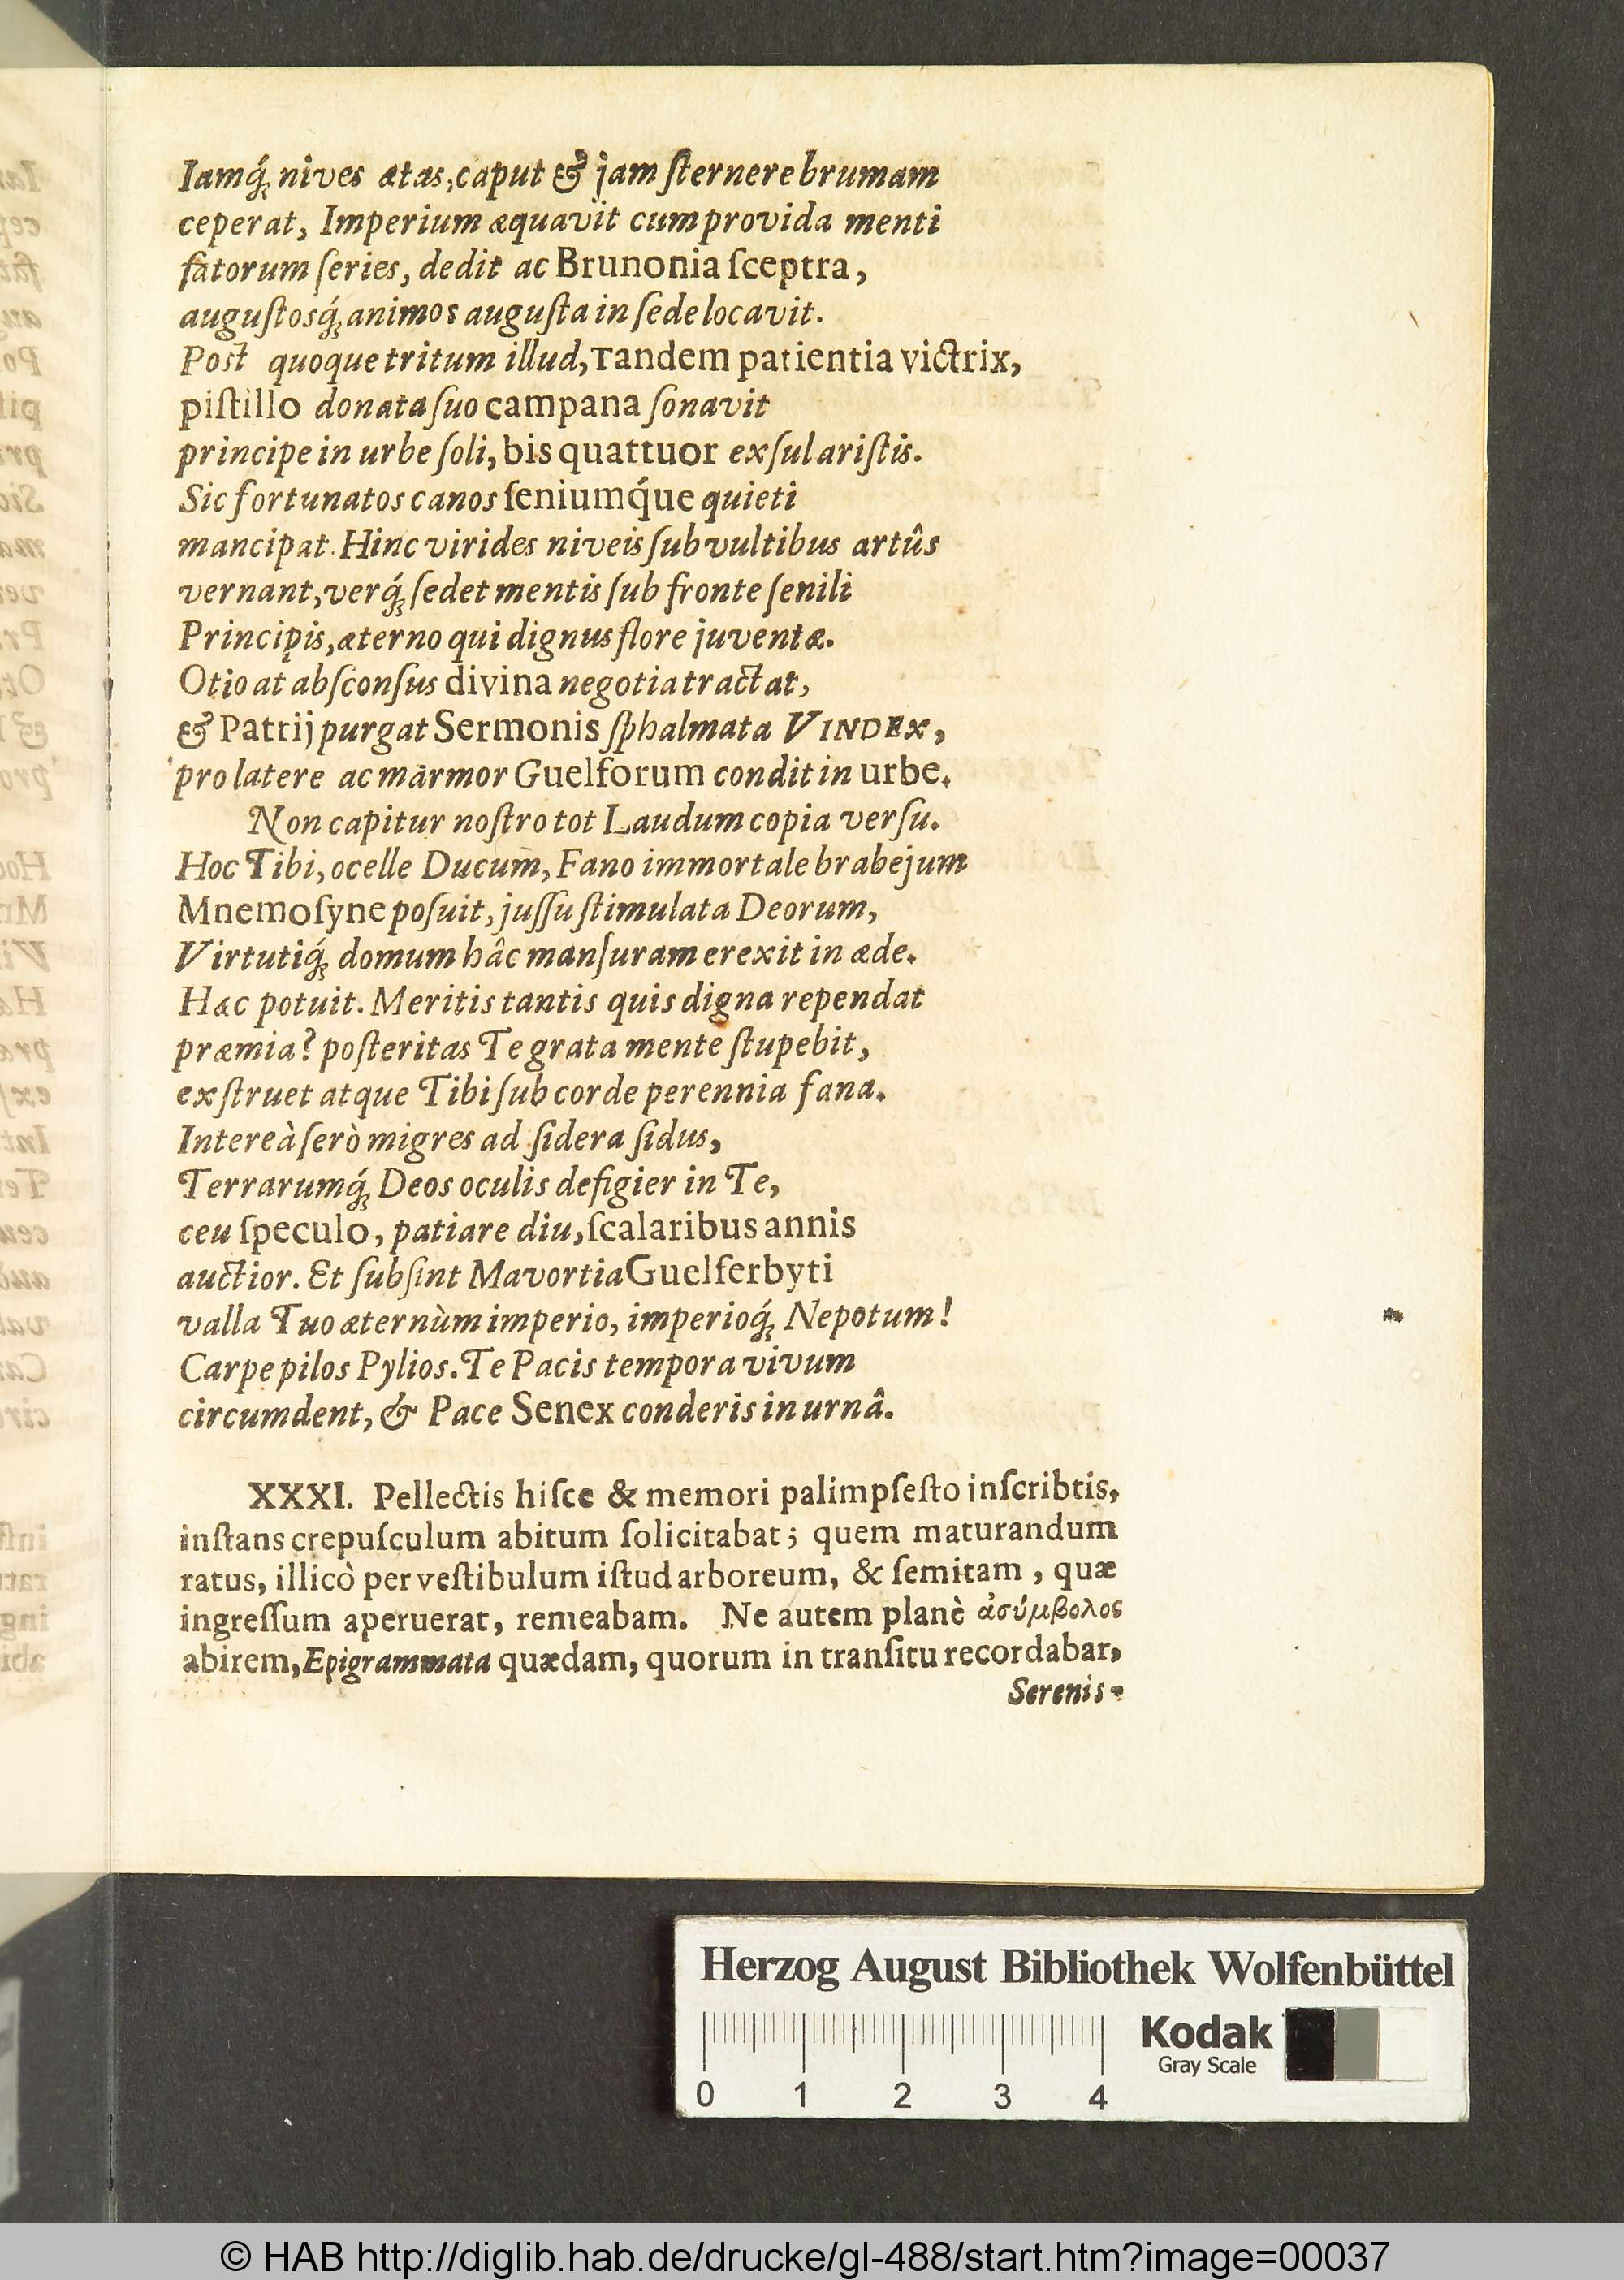 Iamq́; nives ætas, caput & jam ſternere brumam
ceperat, Imperium æquavit cum provida menti
fatorum ſeries, dedit ac Brunonia ſceptra,
auguſtosq́; animos auguſta in ſede locavit.
Poſt quoque tritum illud, Tandem patientia victrix,
piſtillo donata ſuo campana ſonavit
principe in urbe ſoli, bis quattuor exſul ariſtis.
Sic fortunatos canos ſeniumq́ue quieti
mancipat. Hinc virides niveis ſub vultibus artûs
vernant, verq́; ſedet mentis ſub fronte ſenili
Principis, æterno qui dignus flore juventæ.
Otio at abſconſus divina negotia tractat,
& Patrij purgat Sermonis ſphalmata VINDEX,
pro latere ac marmor Guelforum condit in urbe.
Non capitur noſtro tot Laudum copia verſu.
Hoc Tibi, ocelle Ducum, Fano immortale brabejum
Mnemoſyne poſuit, juſſu ſtimulata Deorum,
Virtutiq́; domum hâc manſuram erexit in æde.
Hæc potuit. Meritis tantis quis digna rependat
præmia? poſteritas Te grata mente ſtupebit,
exſtruet atque Tibi ſub corde perennia fana.
Intereà ſerò migres ad ſidera ſidus,
Terrarumq́; Deos oculis defigier in Te,
ceu ſpeculo, patiare diu, ſcalaribus annis
auctior. Et ſubſint Mavortia Guelferbyti
valla Tuo æternùm imperio, imperioq́; Nepotum!
Carpe pilos Pylios. Te Pacis tempora vivum
circumdent, & Pace Senex conderis in urnâ.
XXXI. Pellectis hiſce & memori palimpſeſto inſcribtis,
inſtans crepuſculum abitum ſolicitabat; quem maturandum
ratus, illicò per veſtibulum iſtud arboreum, & ſemitam, quæ
ingreſſum aperuerat, remeabam. Ne autem planè ἀσύμβολος
abirem, Epigrammata quædam, quorum in tranſitu recordabar,
Serenis-
Herzog August Bibliothek Wolfenbüttel
Kodak
Gray Scale
0 1 2 3 4
© HAB http://diglib.hab.de/drucke/gl-488/start.htm?image=00037